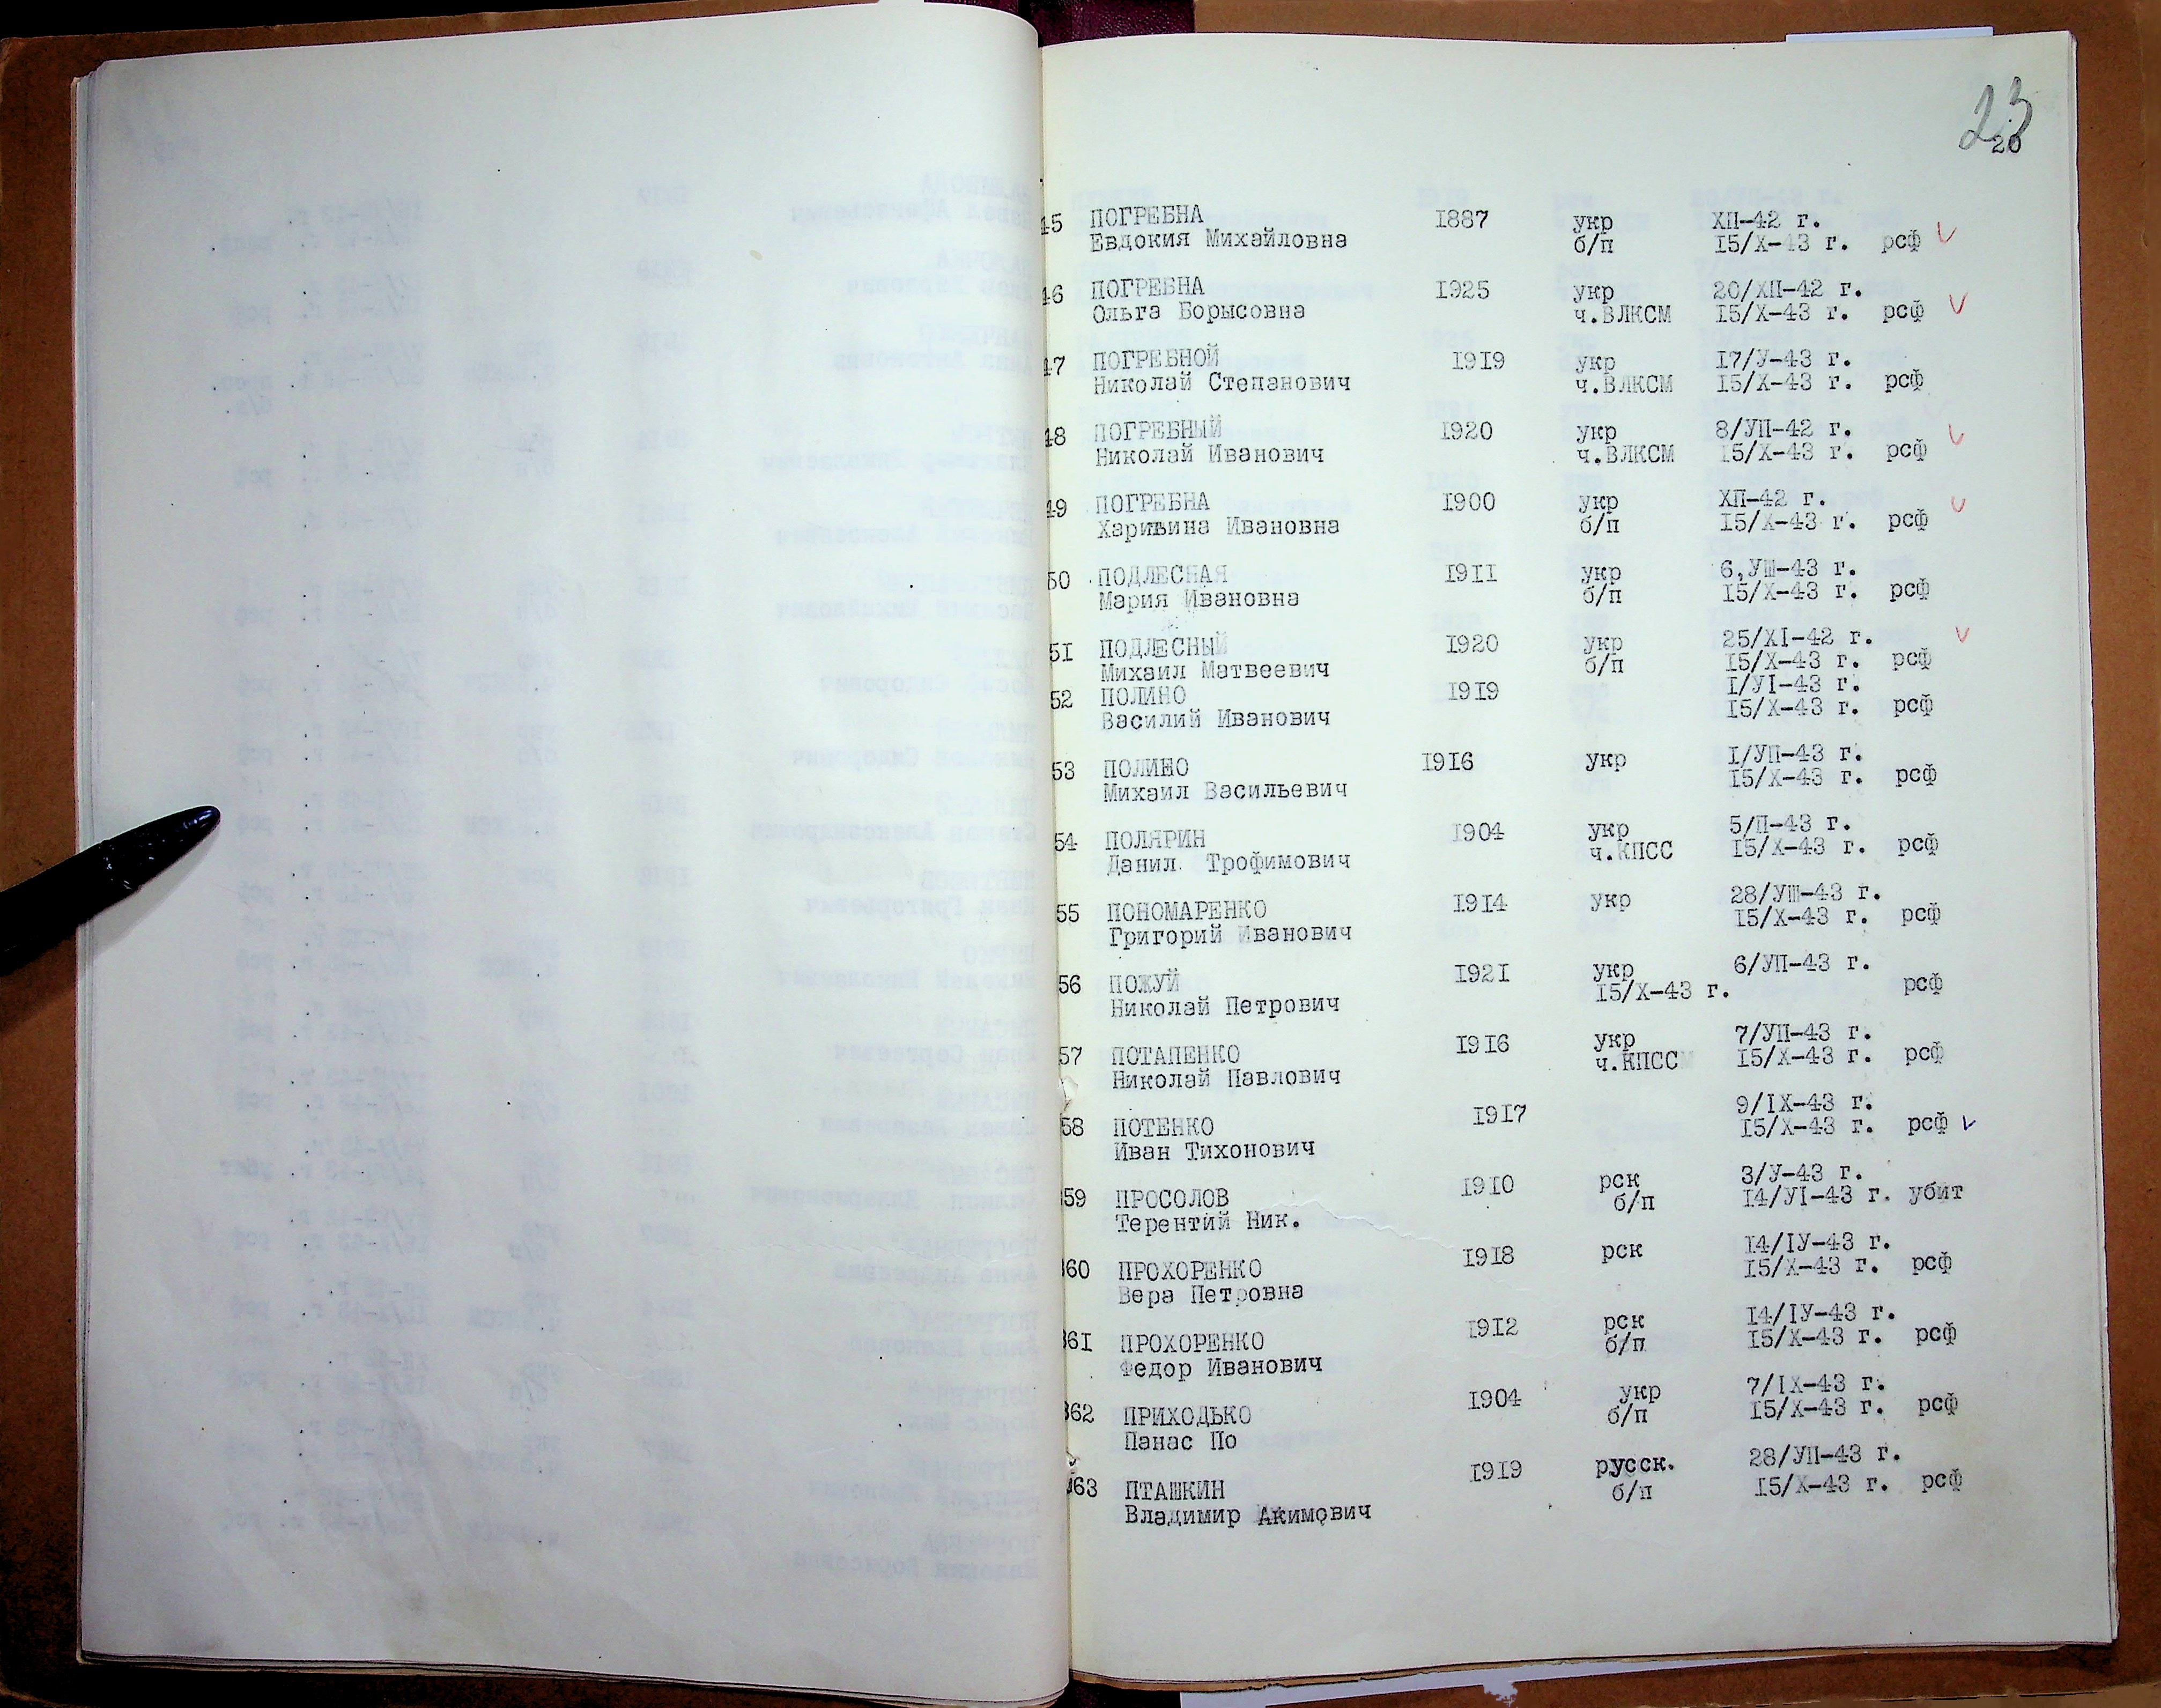 23
20
45 ПОГРЕБНА 1887 укр ХП-42 г.
Евдокия Михайловна б/п 15/Х-43 г. рсф
46 ПОГРЕБНА 1925 укр 20/ХП-42 г.
Ольга Борысовна ч.ВЛКСМ 15/Х-43 г. рсф
47 ПОГРЕБНОЙ 1919 укр 17/У-43 г.
Николай Степанович ч.ВЛКСМ 15/Х-43 г. рсф
48 ПОГРЕБНЫЙ 1920 укр 8/УП-42 г.
Николай Иванович ч.ВЛКСМ 15/Х-43 г. рсф
49 ПОГРЕБНА 1900 укр ХП-42 г.
Ивановна б/п 15/Х-43 г. рсф
50 ПОДЛЕСНАЯ 1911 укр 6,УШ-43 г.
Мария Ивановна б/п 15/Х-43 г. рсф
51 ПОДЛЕСНЫЙ 1920 укр 25/XI-42 г.
Михаил Матвеевич б/п 15/Х-43 г. рсф
52 ПОЛИНО 1919 I/УI-43 г.
Василий Иванович 15/Х-43 г. рсф
53 ПОЛИНО 1916 укр I/УП-43 г.
Михаил Васильевич 15/Х-43 г. рсф
54 ПОЛЯРИН 1904 укр 5/П-43 г.
Данил. Трофимович ч.КПСС 15/Х-43 г. рсф
55 ПОНОМАРЕНКО 1914 укр 28/УШ-43 г.
Григорий Иванович 15/Х-43 г. рсф
56 ПОЖУЙ 1921 укр 6/УП-43 г.
Николай Петрович 15/Х-43 г. рсф
57 ПОТАПЕНКО 1916 укр 7/УП-43 г.
Николай Павлович ч.КПСС 15/Х-43 г. рсф
58 ПОТЕНКО 1917 9/IX-43 г.
Иван Тихонович 15/Х-43 г. рсф
59 ПРОСОЛОВ 1910 рск 3/У-43 г.
Терентий Ник. б/п 14/УI-43 г. убит
360 ПРОХОРЕНКО 1918 рск 14/IУ-43 г.
Вера Петровна 15/Х-43 г. рсф
361 ПРОХОРЕНКО 1912 рск 14/IУ-43 г.
Федор Иванович б/п 15/Х-43 г. рсф
362 ПРИХОДЬКО 1904 укр 7/IX-43 г.
Панас По б/п 15/Х-43 г. рсф
363 ПТАШКИН 1919 русск. 28/УП-43 г.
Владимир Акимович б/п 15/Х-43 г. рсф